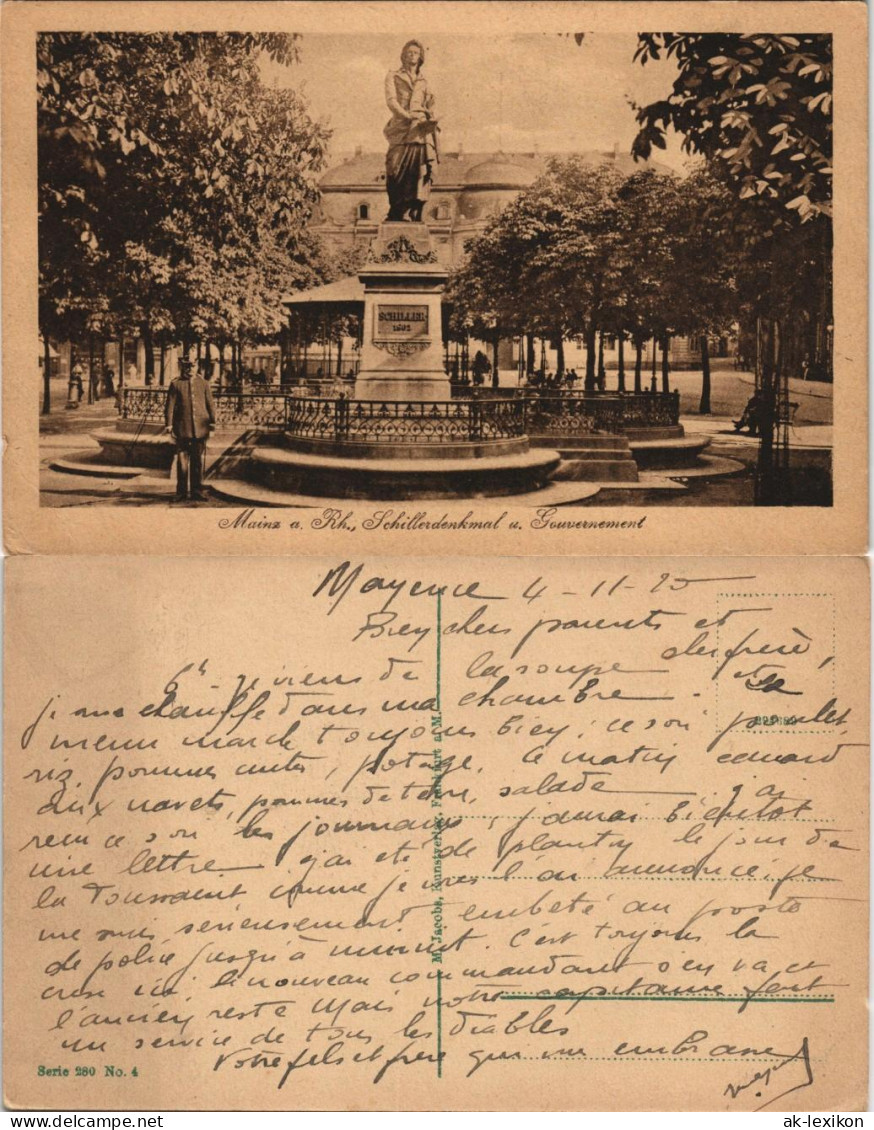 SCHILLER
1862
Mainz a. Rh., Schillerdenkmal u. Gouvernement
Mayence 4-11-25
Bien chers parents et
cher frère,
6h je viens de la soupe et
je me chauffe dans ma chambre. Le
menu marche toujours bien, ce soir poulet,
riz, pommes cuites, potage, ce matin canard
aux navets, pommes de terre, salade. j'ai
reçu ce soir les journaux, j'aurai bientôt
une lettre. j'ai été de planton le jour de
la Toussaint comme je vous l'ai annoncé, je
me suis sérieusement embêté au poste
de police jusqu'à minuit. C'est toujours la
crise ici, le nouveau commandant s'en va et
l'ancien reste mais notre capitaine fait
un service de tous les diables
Votre fils et frère qui vous embrasse
M. Jacobs, Kunstverlag, Frankfurt a. M.
Serie 280 No. 4
ak-lexikon